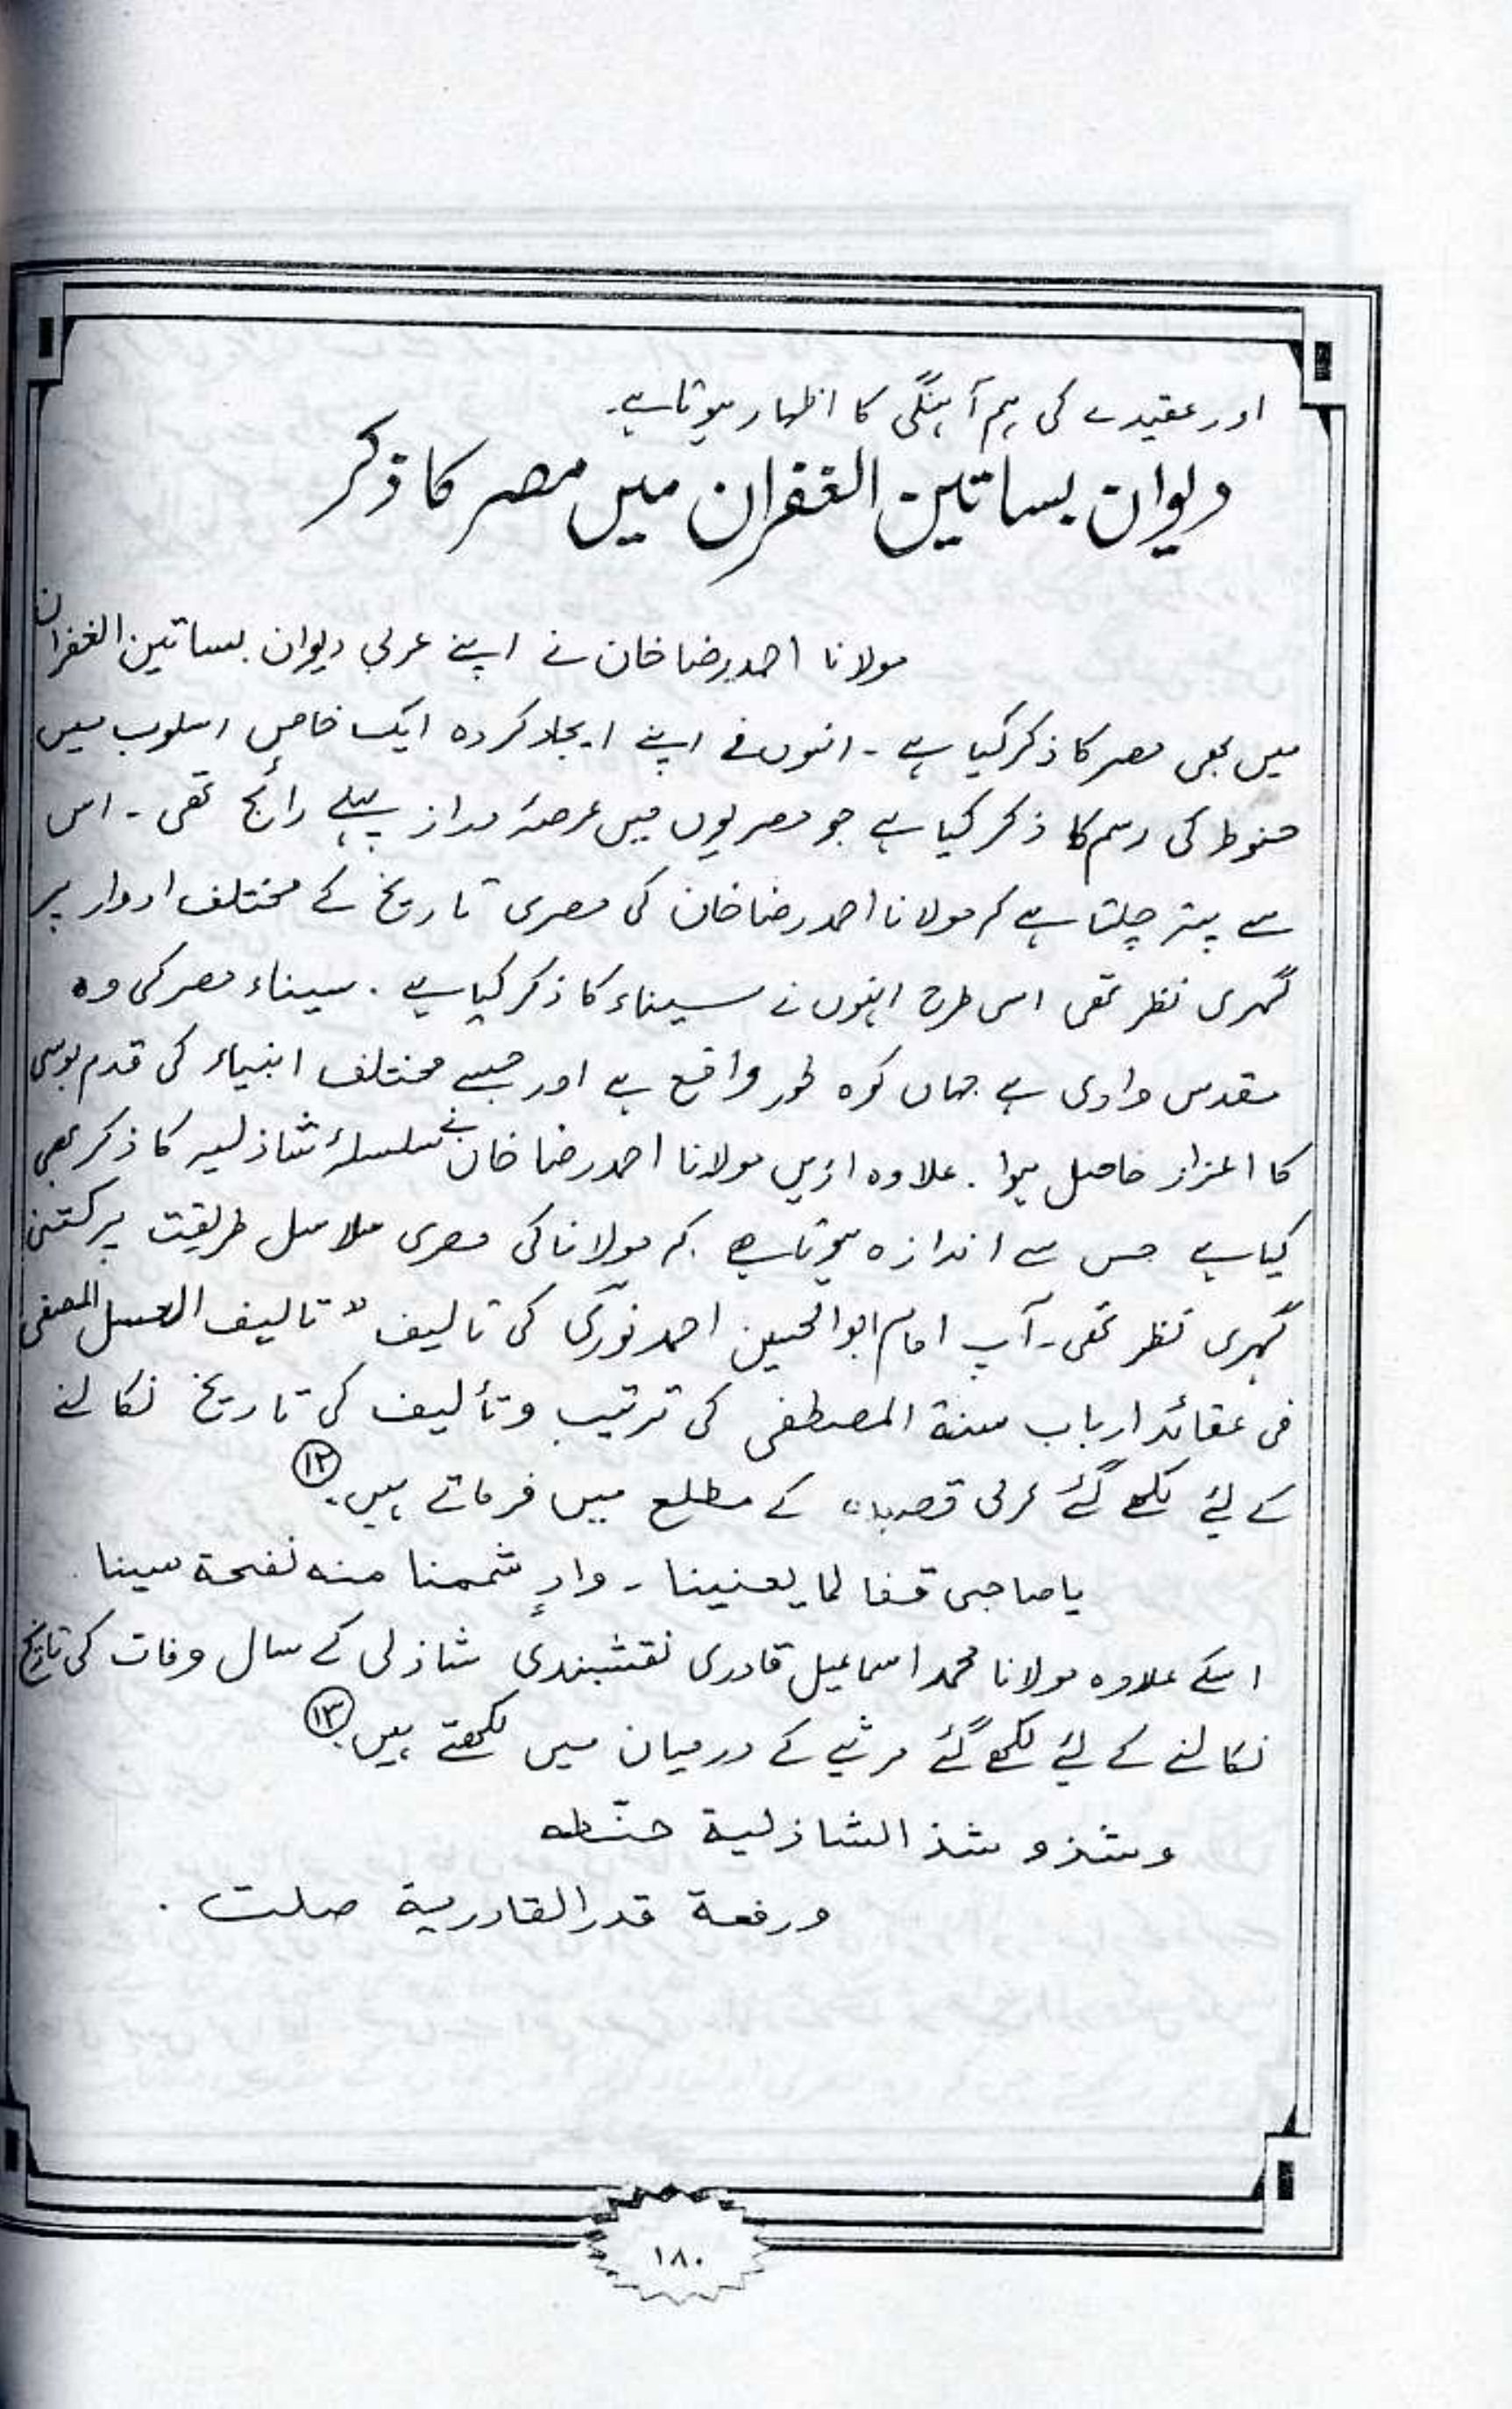 اور عقیدے کی ہم آہنگی کا اظہار ہوتا ہے۔
دیوان بساتین الغفران میں مصر کا ذکر
مولانا احمد رضا خان نے اپنے عربی دیوان بساتین الغفران
میں بھی مصر کا ذکر کیا ہے ۔ انہوں نے اپنے ایجاد کردہ ایک خاص اسلوب میں
حنوط کی رسم کا ذکر کیا ہے جو مصریوں میں عرصۂ دراز پہلے رائج تھی ۔ اس
سے پتہ چلتا ہے کہ مولانا احمد رضا خان کی مصری تاریخ کے مختلف ادوار پر
گہری نظر تھی اسی طرح انہوں نے سیناء کا ذکر کیا ہے ۔ سیناء مصر کی وہ
مقدس وادی ہے جہاں کوہ طور واقع ہے اور جسے مختلف انبیاء کی قدم بوسی
کا اعزاز حاصل ہوا ۔ علاوہ ازیں مولانا احمد رضا خان نے سلسلۂ شاذلیہ کا ذکر بھی
کیا ہے جس سے اندازہ ہوتا ہے کہ مولانا کی مصری سلاسل طریقت پر کتنی
گہری نظر تھی ۔ آپ امام ابو الحسین احمد نوری کی تالیف " تالیف العسل المصفی
فی عقائد ارباب سنة المصطفی کی ترتیب و تألیف کی تاریخ نکالنے
کے لئے لکھے گئے عربی قصیدہ کے مطلع میں فرماتے ہیں ۔ ⑫
یا صاحبی قفا لما یعنینا ۔ وادٍ شممنا منه نفحة سینا
اسکے علاوہ مولانا محمد اسماعیل قادری نقشبندی شاذلی کے سال وفات کی تاریخ
نکالنے کے لئے لکھے گئے مرثیے کے درمیان میں لکھتے ہیں ۔ ⑬
وشذو شذ الشاذلیة حنّطه
ورفعة قدر القادریة صلت .
١٨٠